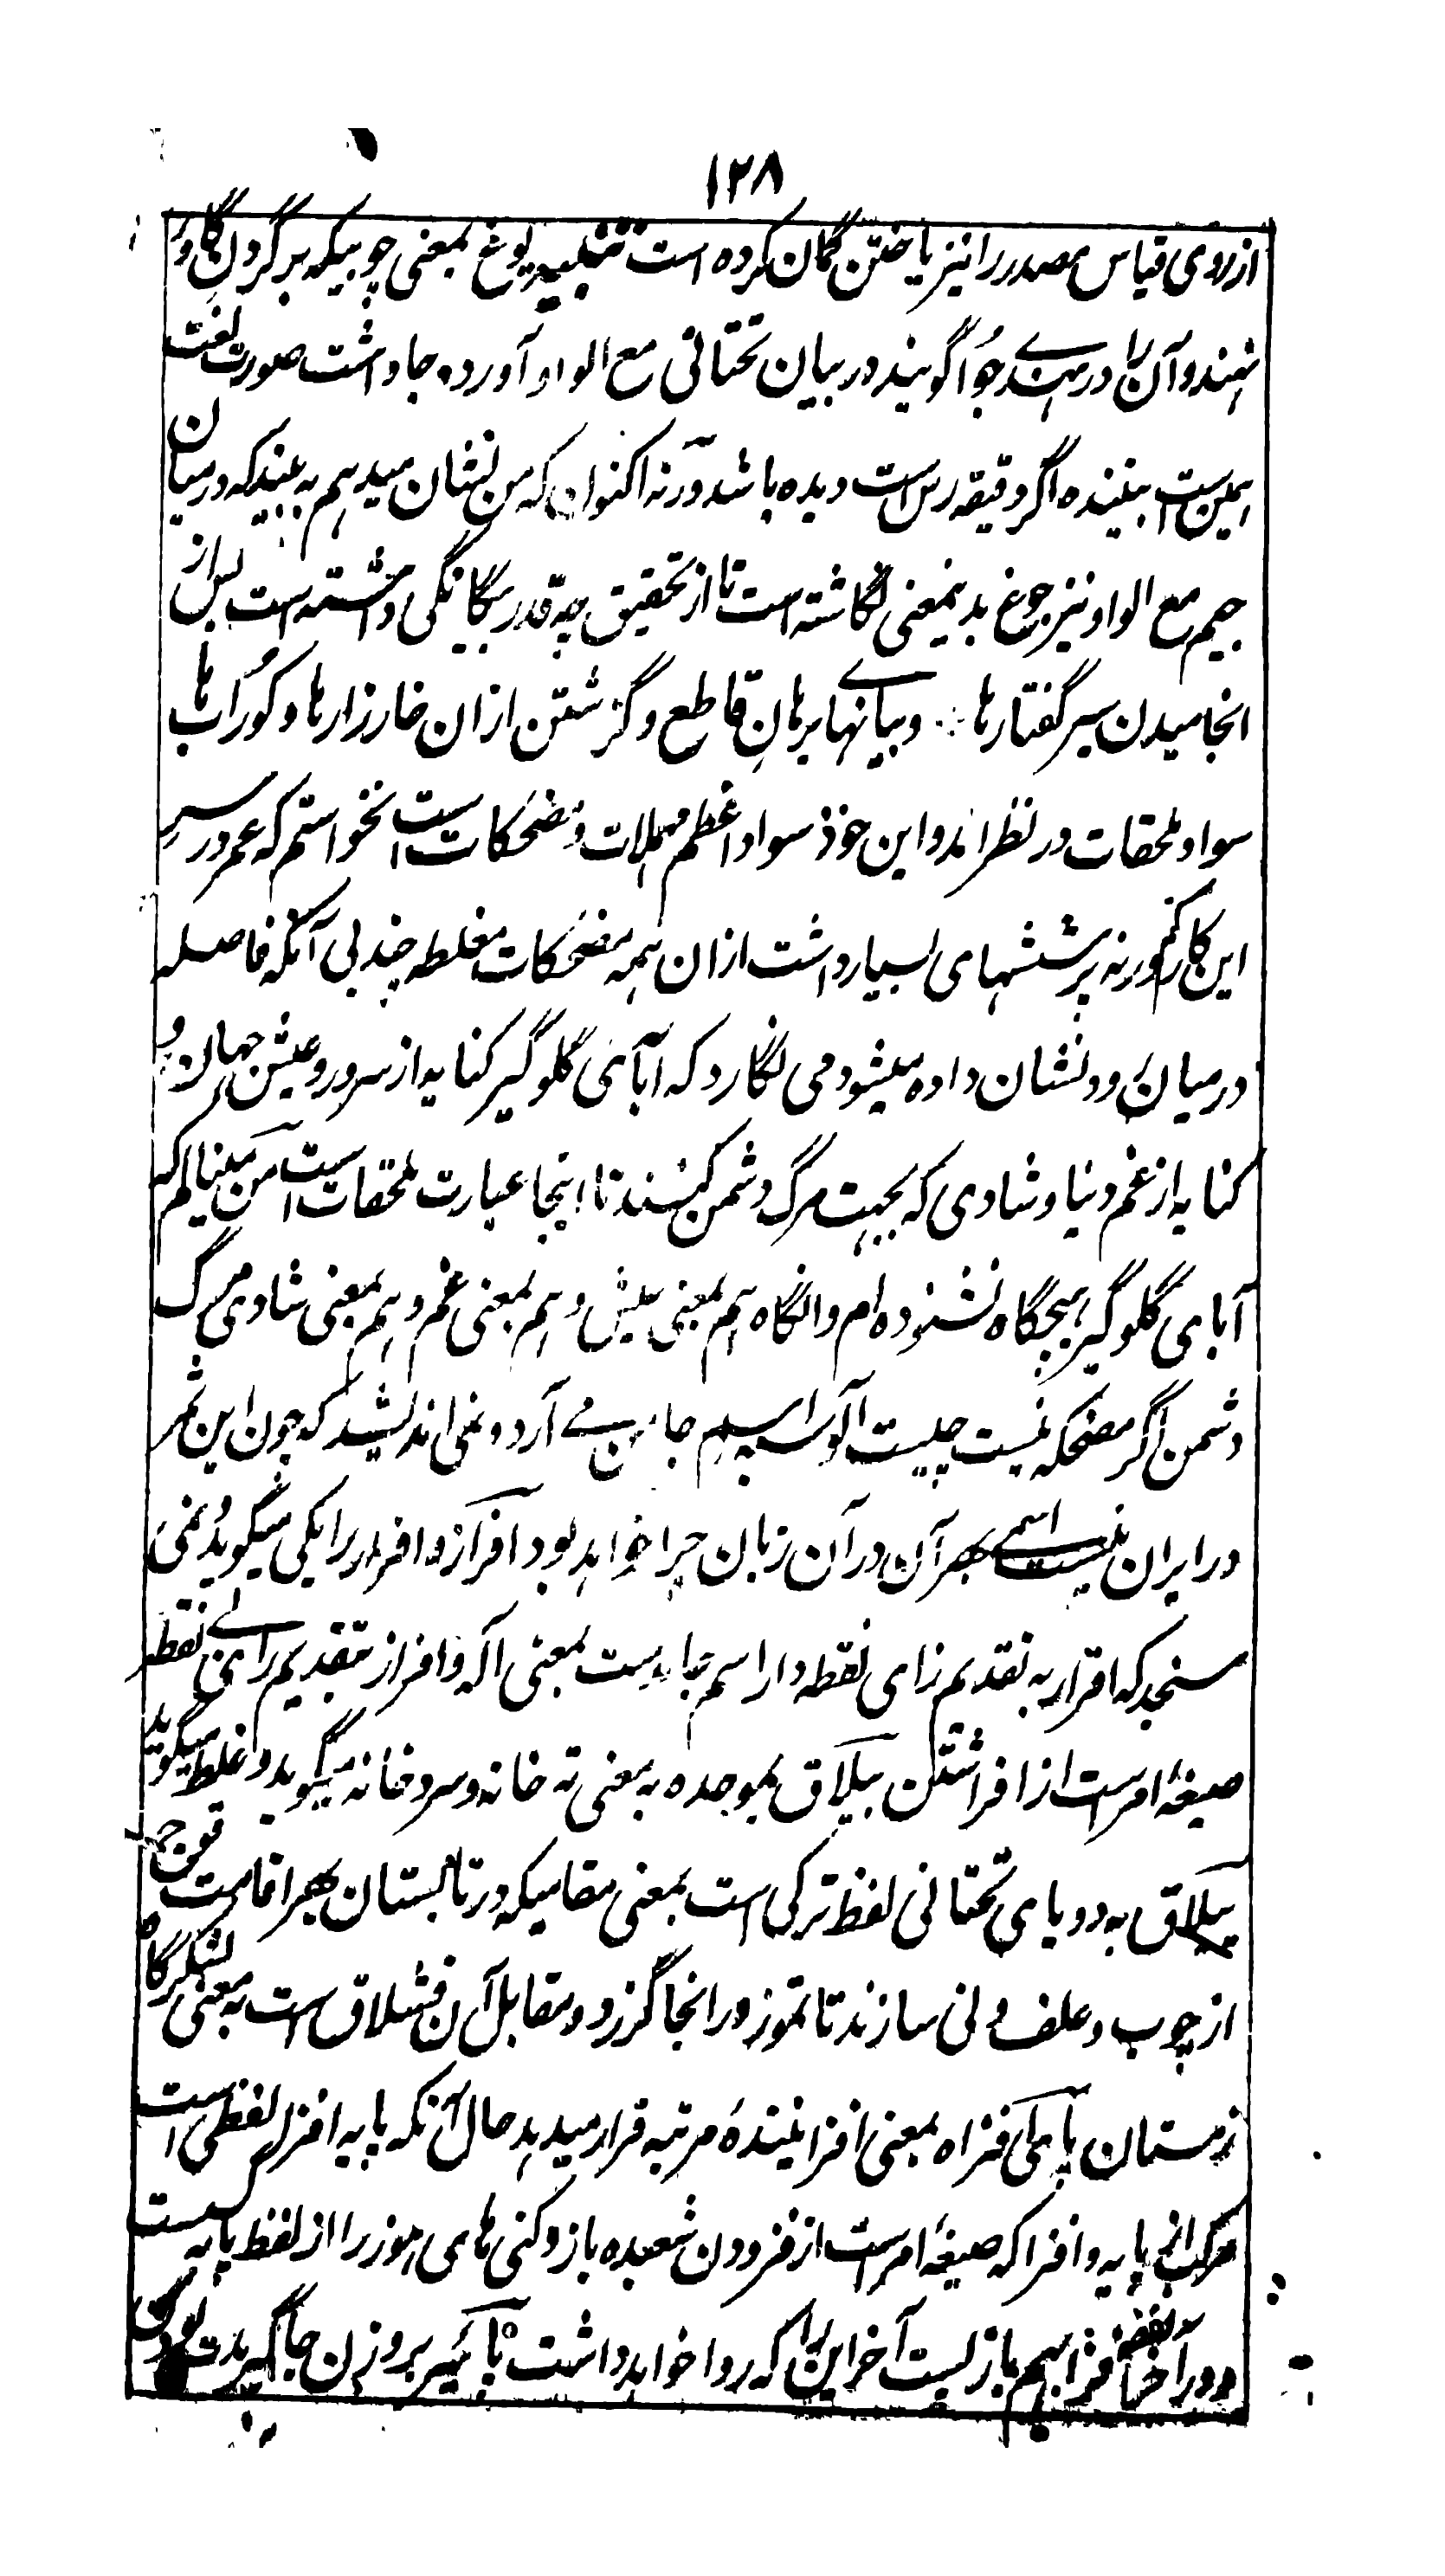 ۱۲۸
از روی قیاس مصدر را نیز یاختن گمان کرده است تنبیه یوغ بمعنی چوبیکه بر گردن گاو
نهند و آن را در هندی جُوا گویند در بیان تحتانی مع الواو آورده جا داشت صورت لغت
همین ست بیننده اگر دقیقه رس است دیده باشد ورنه اکنون که من نشان میدهم به بیند که در میان
جیم مع الواو نیز جوغ بدینمعنی نگاشته است تا از تحقیق چه قدر بیگانگی داشته است پس از
انجامیدن سیر گفتارها و بیانهای برهانِ قاطع و گزشتن ازان خارزارها و کورابها
سواد ملحقات در نظر اند و این خود سواد اعظم مهملات و مضحکات است نخواستم که عمر در سر
این کار کنم ورنه پرسشهای بسیار داشت ازان همه مضحکات مغلطه چند بی آنکه فاصله
در میان رود نشان داده میشود می نگارد که آبای گلوگیر کنایه از سرور و عیش جهان و
کنایه از غم دنیا و شادی که بجهت مرگ دشمن کنند تا اینجا عبارت ملحقات است من مینالم که
آبای گلوگیر هیچگاه نشنوده ام وانگاه هم بمعنی عیش و هم بمعنی غم و هم بمعنی شادی مرگ
دشمن اگر مضحکه نیست چیست آلو را اسم جامن می آرد و نمی اندیشد که چون این ثمر
در ایران نیست اسمی بهر آن در آن زبان چرا خواهد بود افراز و افزار را یکی میگوید و نمی
سنجد که افزار به تقدیم زای نقطه دار اسم جامدست بمعنی آله و افراز بتقدیم رای بی نقطه
صیغهٔ امرست از افراشتن بیلاق بموحده به معنی ته خانه و سردخانه میگوید و غلط میگوید
ییلاق به دو یای تحتانی لفظ ترکی است بمعنی مقامیکه در تابستان بهر اقامت فوجها
از چوب و علف و نی سازند تا تموز در انجا گزرد و مقابل آن قشلاق است به معنی لشکرگاه
زمستان پایکی فزاه بمعنی افزایندهٔ مرتبه قرار میدهد حال آنکه پایه افزا لفظی است
مرکب از پایه و افزا که صیغهٔ امرست از فزودن شعبده باز دکنی های هوز را از لفظ پایه
و در آخر لفظ فزا بهم باز بست آخر این را که روا خواهد داشت پاگیر بروزن جاگیر